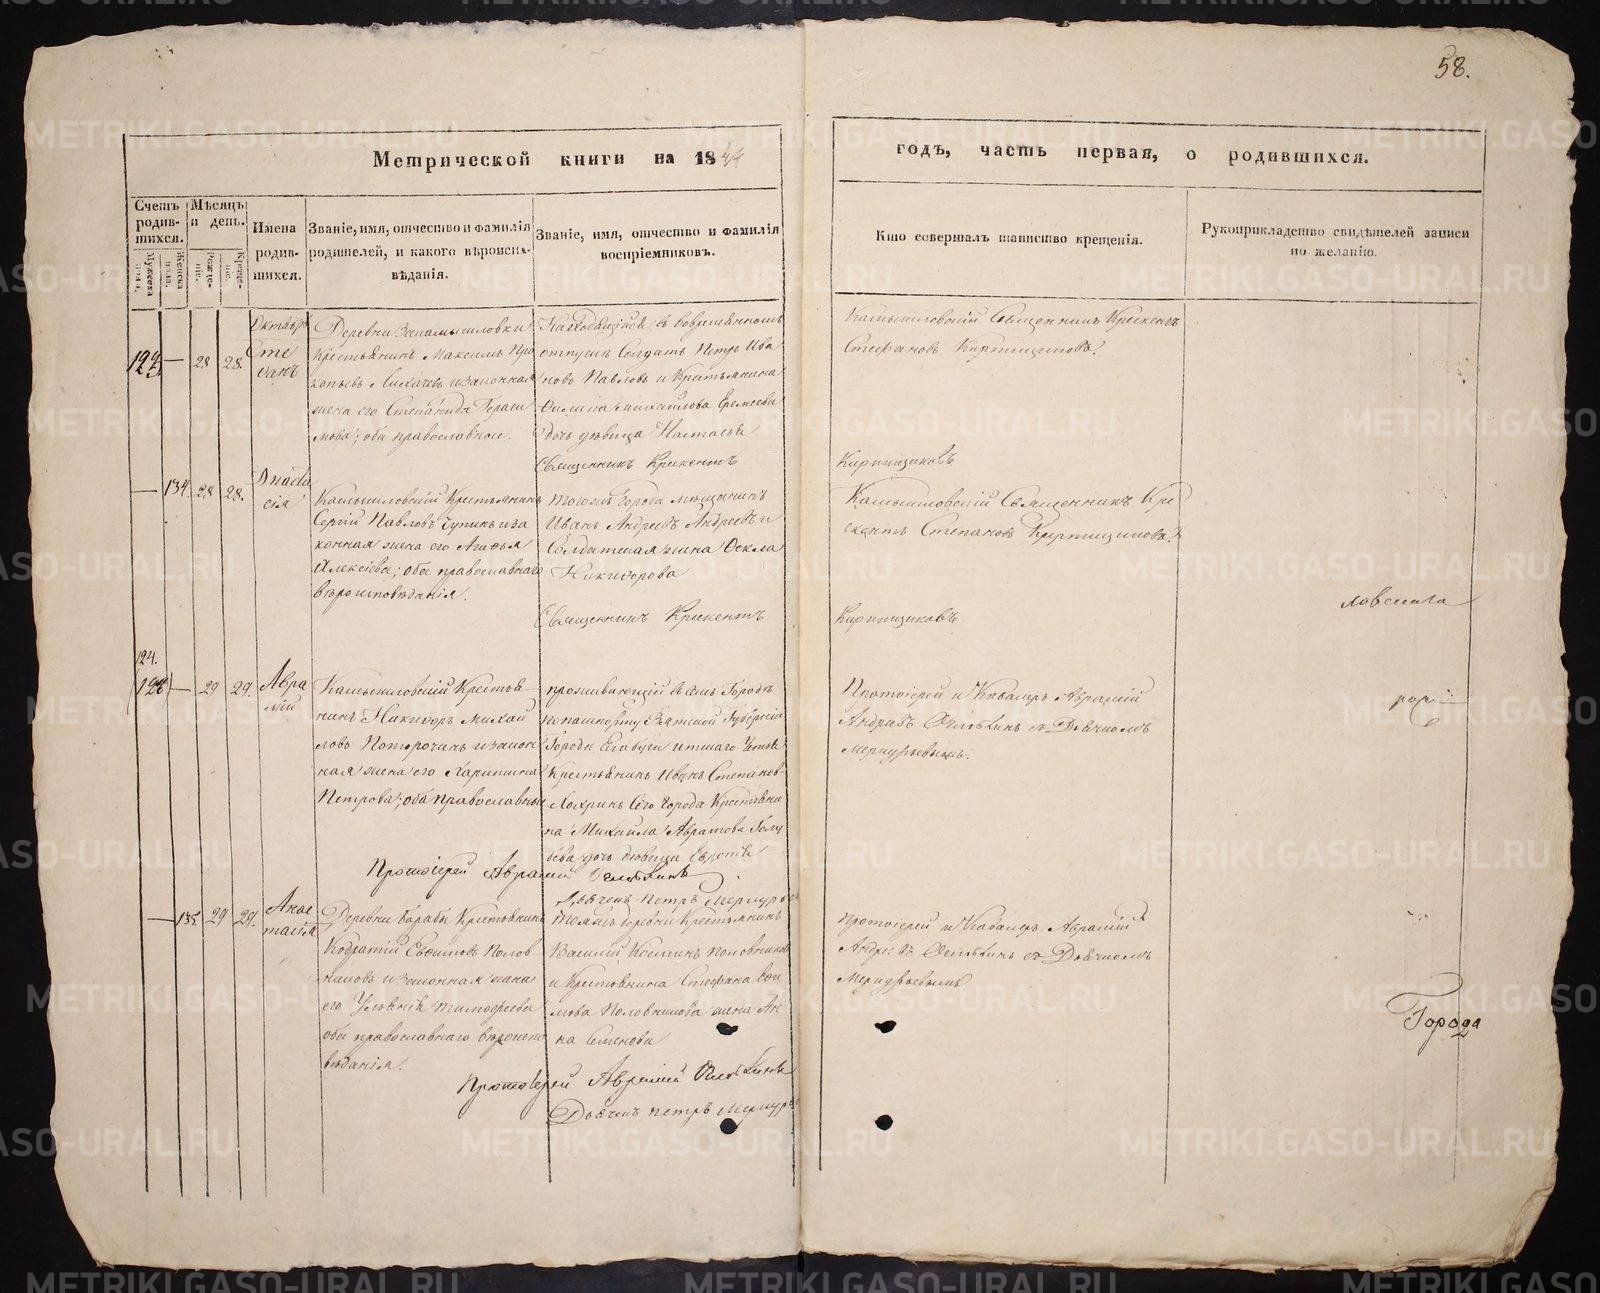 58.
Метрической книги на 1844
годъ, часть первая, о родившихся.
Счетъ родившихся.
Мужеска пола.
Женска пола.
Мѣсяцъ и день.
Рожденіе.
Крещеніе.
Имена родившихся.
Званіе, имя, отчество и фамилія родителей, и какого вѣроисповѣданія.
Званіе, имя, отчество и фамилія воспріемниковъ.
Кто совершалъ таинство крещенія.
Рукоприкладство свидѣтелей записи по желанію.
Октябрь
123 — 28 28.
Сте
фанъ
Деревни
Крестьянинъ Максимъ Про
копьевъ Лихачевъ и законная
жена его Степанида Гераси
мова; оба православные.
Находящійся въ
отпускѣ Солдатъ Петръ Ива
новъ Павловъ и Крестьянина
Филипа Михайлова Еремеева
дочь дѣвица Настасья
Камышловскій Священникъ Крискентъ
Стефановъ Кирпищиковъ.
Священникъ Крискентъ
Кирпищиковъ
— 134. 28 28.
Анаста
сія
Камышловскій Крестьянинъ
Сергій Павловъ Чупинъ и за
конная жена его Агафья
Алексіева; оба православнаго
вѣроисповѣданія.
тогожъ города мѣщанинъ
Иванъ Андреевъ Андреевъ и
Солдатская жена Фекла
Никифорова
Камышловскій Священникъ Кри
скентъ Степановъ Кирпищиковъ.
Священникъ Крискентъ
Кирпищиковъ
ловскаго
124.
— 29 29.
Авра
мій
Камышловскій Крестья
нинъ Никифоръ Михай
ловъ Поторочинъ и закон
ная жена его Харитина
Петрова; оба православные
проживающій въ семъ Городѣ
по пашпорту Вятской Губерніи
Города Елабуги
Крестьянинъ Иванъ Степановъ
Сего города Крестьяни
на Михаила
дочь дѣвица Евдокія
Протоіерей и Кавалеръ Аврамій
Андреевъ съ Дьячкомъ
Меркурьевымъ.
Протоіерей Аврамій
Дьячекъ Петръ Меркурьев
— 135. 29 29.
Анас
тасія
Деревни Крестьянинъ
Кодратій Евфимовъ Полов
никовъ и законная жена
его Ульянія Тимофеева
оба православнаго вѣроиспо
вѣданія.
Тояжъ деревни Крестьянинъ
Василій Козминъ Половников
и Крестьянина Стефана
мова Половникова жена Ан
на Семенова
Протоіерей и Кавалеръ Аврамій
съ Дьячкомъ
Меркурьевымъ
Протоіерей Аврамій
Дьячекъ Петръ Меркурьев
Города
METRIKI.GASO-URAL.RU